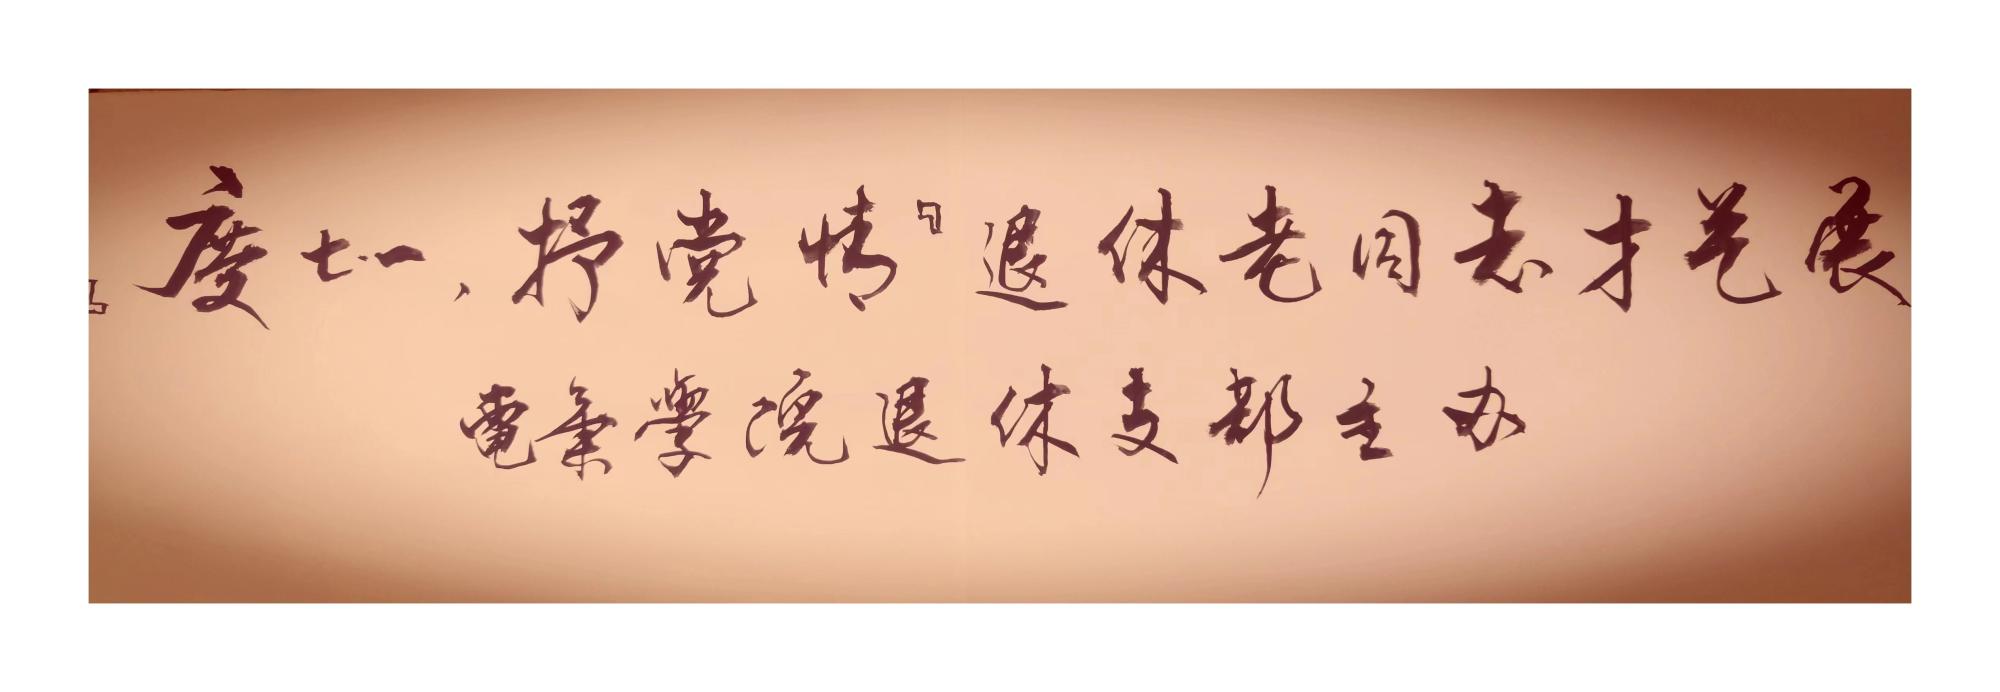 『度七·一、抒党情』退休老同志才艺展
電氣學院退休支部主办